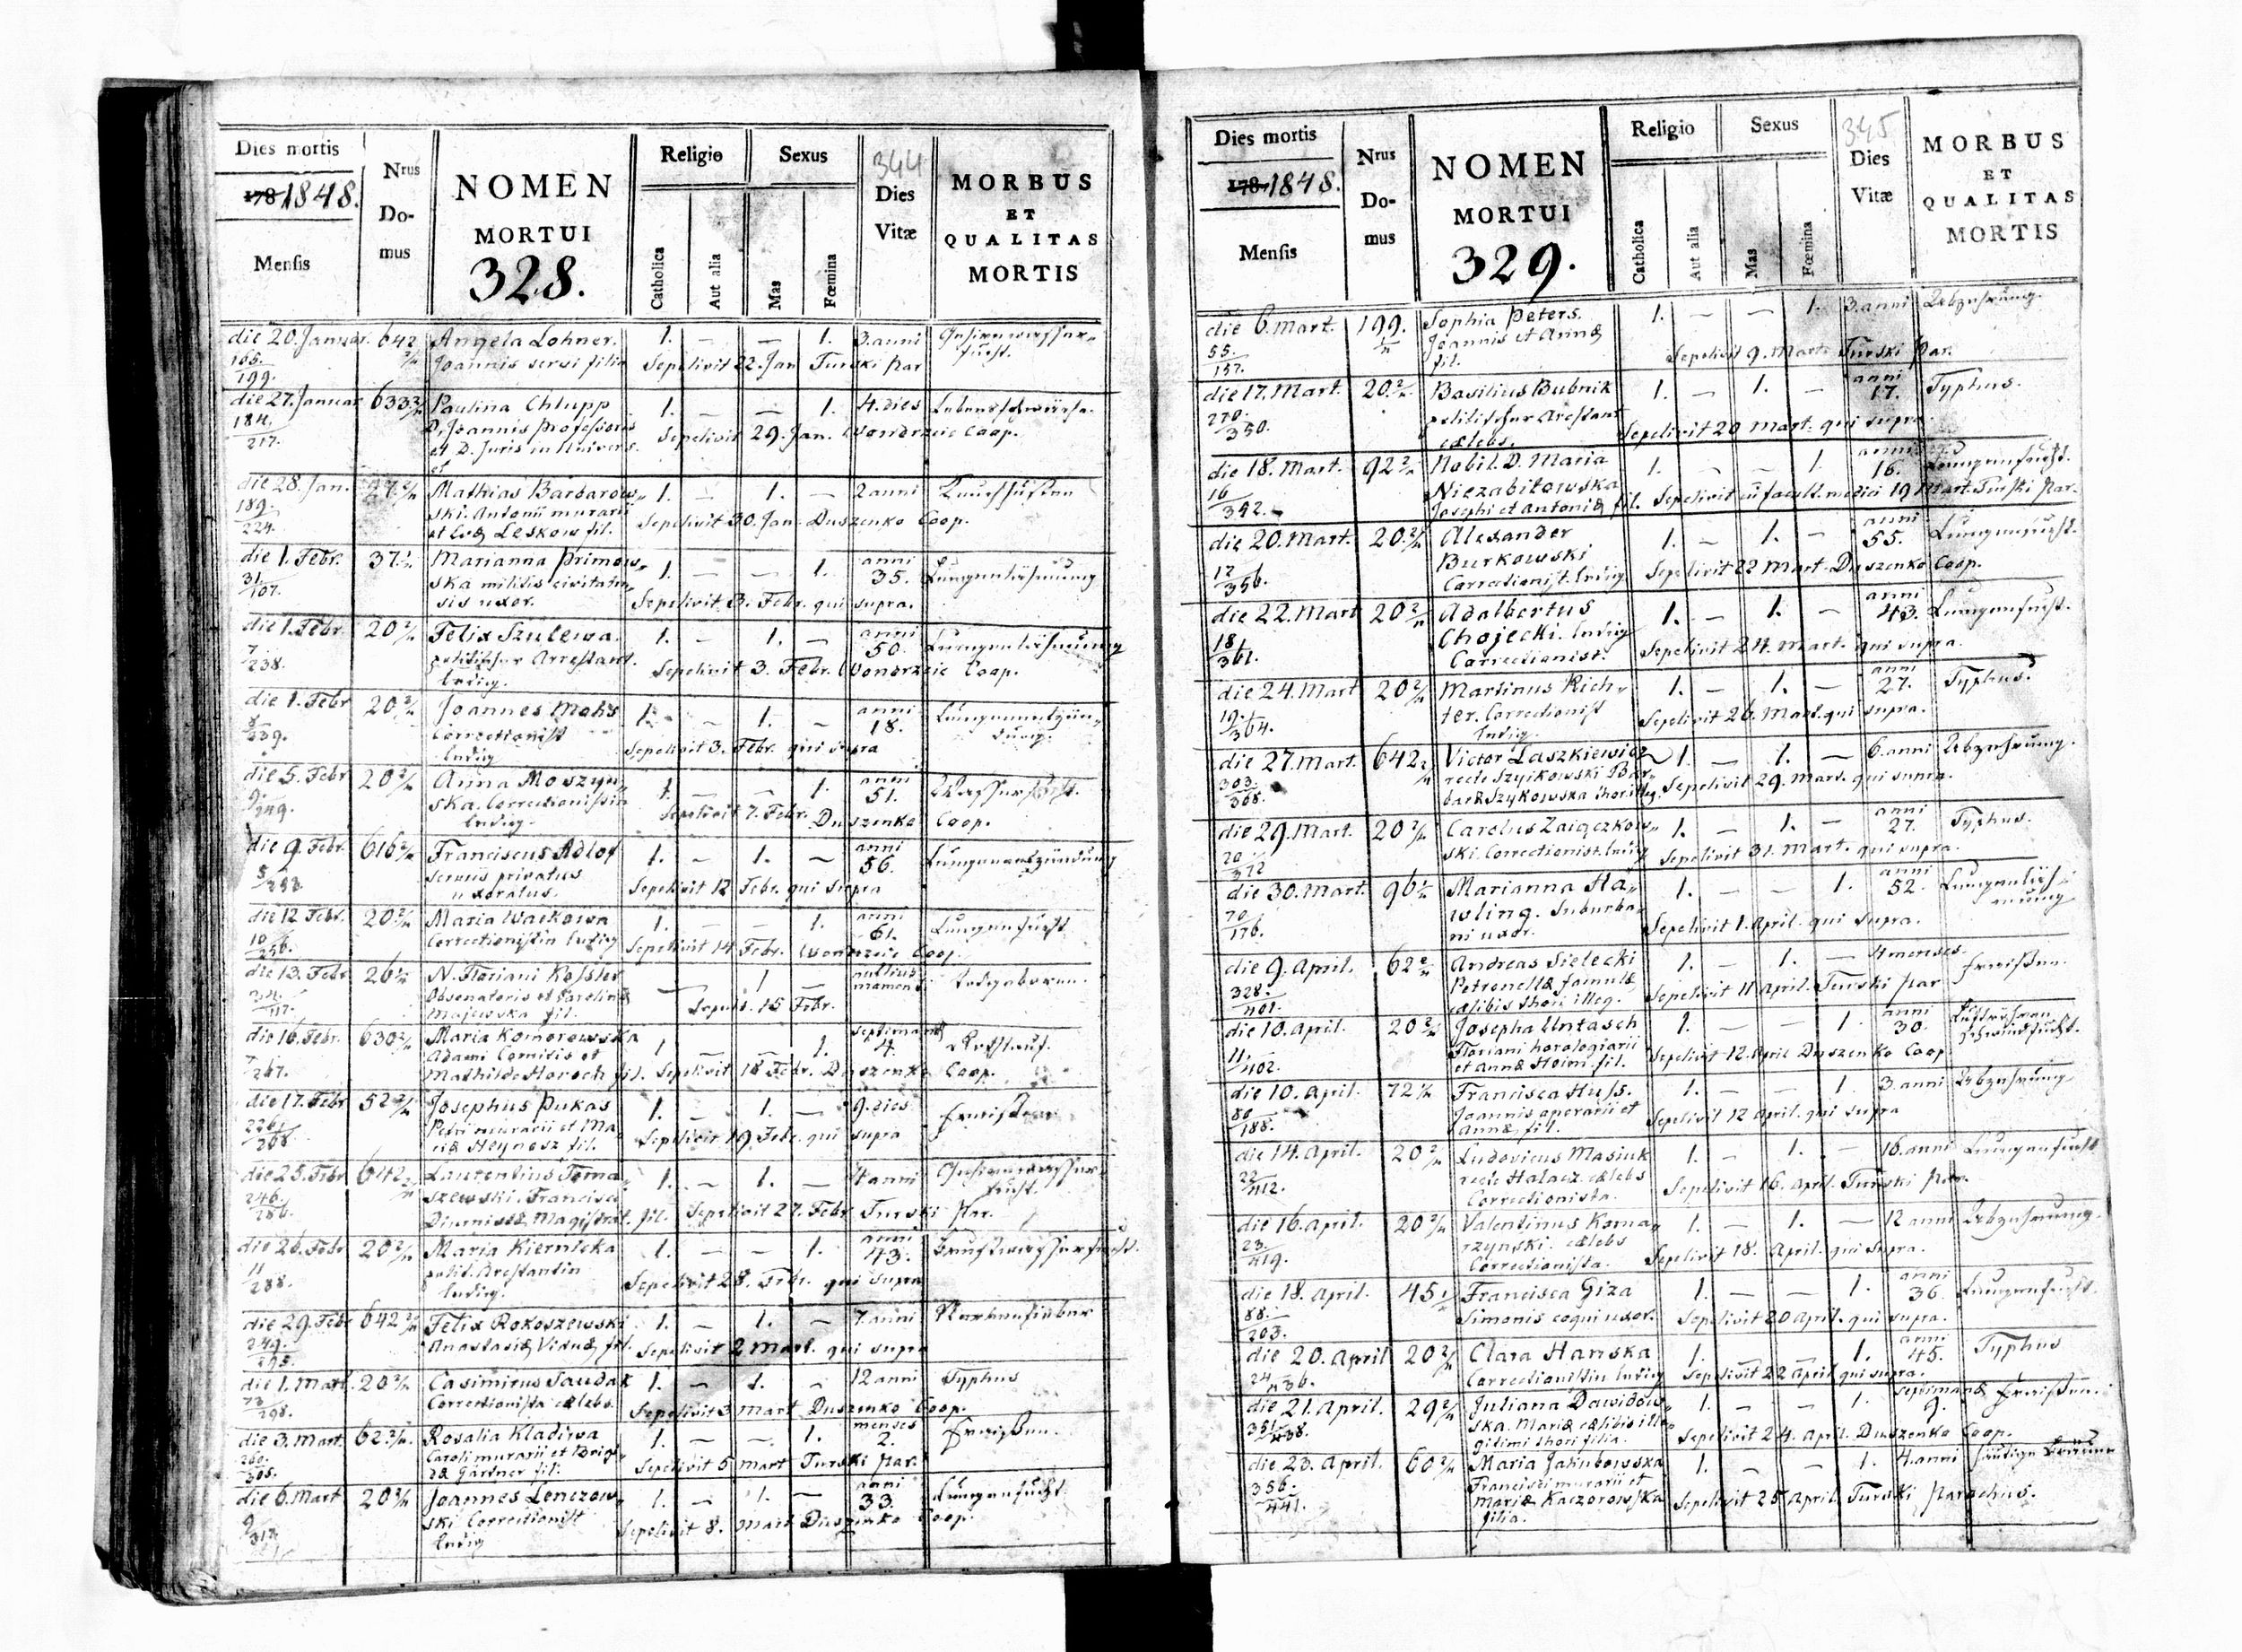 Dies mortis
178 1848.
Mensis
Nrus
Do-
mus
NOMEN
MORTUI
328.
Religio
Catholica
Aut alia
Sexus
Mas
Fœmina
344
Dies
Vitæ
MORBUS
ET
QUALITAS
MORTIS
die 20. Januar. 642 Angela Lohner. 1. — — 1. 3. anni Gehirnwasser-
2/n Joannis servi filia sucht.
165. Sepelivit 22. Jan Turski Par
199.
die 27. Januar 633 2/n Paulina Chlupp 1. — — 1. 4. dies Lebensschwäche.
184. D. Joannis Professoris
217. et D. Juris in Univers. Sepelivit 29. Jan. Wondrzeic Coop.
et
die 28. Jan. 2/n Mathias Barbarow- 1. — 1. — 2 anni Keuchhusten
189. ski. Antonii murarii
224. et Evæ Leskow fil. Sepelivit 30. Jan. Duszenko Coop.
die 1. Febr. 37. Marianna Primow- 1. — — 1. anni
31. ska militis civitaten- 35. Lungenlähmung
107. sis uxor. Sepelivit 3. Febr. qui supra.
die 1. Febr. 20 2/n Felix Szulewa. 1. — 1. — anni
7. politischer Arrestant. 50. Lungenlähmung
238. ledig. Sepelivit 3. Febr. Wondrzeic Coop.
die 1. Febr 20 2/n Joannes Mohs 1. — 1. — anni
8 Correctionist 18. Lungenentzün-
239. ledig Sepelivit 3. Febr. qui supra dung.
die 5. Febr 20 2/n Anna Moszyn- 1. — — 1. anni
9. ska. Correctionistin 51. Wassersucht.
249. ledig. Sepelivit 7. Febr. Duszenko Coop.
die 9. Febr. 616 2/n Franciscus Adlof 1. — 1. — anni
5 servus privatus 56. Lungenentzündung
uxoratus. Sepelivit 12 Febr. qui supra
die 12 Febr. 20 2/n Maria Wackowa 1. — — 1. anni
10 Correctionistin ledig 61. Lungensucht
256. Sepelivit 14 Febr. Wondrzeic Coop.
die 13. Febr 26 N. Floriani Kessler — 1 — nullius
34. Obsonatoris et Carolinæ moment. Todgeboren.
117. Majewska fil. Sepeli. 15 Febr.
die 16. Febr. 630 2/n Maria Komorowska 1. — — 1. septimanæ
7 Adami Comitis et 4. Rothlauf.
267. Mathilde Horoch fil. Sepelivit 18 Febr. Duszenko Coop.
die 17. Febr 52 2/n Josephus Pukas 1. — 1. — 9. dies
226. Petri murarii et Ma- Fraißen
268. riæ Heynosz fil. Sepelivit 19 Febr. qui supra
die 25. Febr 642 2/n Laurentius Toma- 1. — 1. — 4 anni Gehirnwasser
246. szewski. Francisci sucht.
286. Diurnistæ Magistrat. fil. Sepelivit 27. Febr Turski Par.
die 26. Febr 20 2/n Maria Kiernicka 1. — — 1. anni
11 polit. Arestantin 43. Brustwassersucht.
288. ledig. Sepelivit 28. Febr. qui supra
die 29. Febr 642 2/n Felix Rokoszewski 1. — 1. — 7. anni Nervenfieber
249. Anastasiæ Viduæ fil. Sepelivit 2 Mart. qui supra
295.
die 1. Mart. 20 2/n Casimirus Saudak 1. — 1. — 12 anni Typhus
Correctionista cælebs. Sepelivit 3 Mart Duszenko Coop.
298.
die 3. Mart. 62 2/n Rosalia Kladiwa 1. — — 1. menses
260. Caroli murarii et Brigi- 2. Fraißen.
305. dæ Gärtner fil. Sepelivit 5 Mart Turski Par.
die 6. Mart 20 2/n Joannes Lenczow- 1. — 1. — anni
9 ski Correctionist 33. Lungensucht.
ledig Sepelivit 8. Mart Duszenko Coop.
Dies mortis
178 1848.
Mensis
Nrus
Do-
mus
NOMEN
MORTUI
329.
Religio
Catholica
Aut alia
Sexus
Mas
Fœmina
345
Dies
Vitæ
MORBUS
ET
QUALITAS
MORTIS
die 6. Mart. 199. Sophia Peters. 1. — — 1. 3. anni Abzehrung.
55. Joannis et Annæ
157. fil. Sepelivit 9. Mart. Turski Par.
die 17. Mart 20 2/n Basilius Bubnik 1. — 1. — anni
270. politischer Arestant 17. Typhus.
350. cælebs. Sepelivit 20 Mart. qui supra
die 18. Mart. 92 2/n Nobil. D. Maria 1. — — 1. anni
16 Niezabitowska 16. Lungensucht.
342. Josephi et Antoniæ fil. Sepelivit cū facult. medici 19 Mart. Turski Par.
die 20. Mart. 20 2/n Alexander 1. — 1. — anni
17 Burkowski 55. Lungensucht.
356. Correctionist. ledig Sepelivit 22 Mart. Duszenko Coop.
die 22. Mart 20 2/n Adalbertus 1. — 1. — anni
18 Chojecki. ledig 43. Lungensucht.
361. Correctionist. Sepelivit 24. Mart. qui supra.
die 24. Mart 20 2/n Martinus Rich- 1. — 1. — anni
19. ter. Correctionist 27. Typhus.
364. ledig. Sepelivit 26. Mart. qui supra.
die 27. Mart. 642 2/n Victor Laszkiewicz 1. — 1. — 6. anni Abzehrung.
303. recte Szyikowski Bar-
368. baræ Szykowska thori illeg. Sepelivit 29. Mart. qui supra.
die 29. Mart. 20 2/n Carolus Zaigczkow- 1. — 1. — anni
20 ski. Correctionist. ledig 27. Typhus.
372 Sepelivit 31. Mart. qui supra.
die 30. Mart. 96 Marianna Hä- 1. — — 1. anni
70 wling. Suburba- 52. Lungenläh-
176. ni uxor. Sepelivit 1. April. qui supra. mung
die 9. April. 62 2/n Andreas Sielecki 1. — 1. — 4 menses.
328. Petronellæ famulæ Fraißen.
401. cælibis thori illeg. Sepelivit 11 April. Turski Par
die 10. April. 20 2/n Josepha Untasch 1. — — 1 anni
11. Floriani horologiarii 30. Luftröhren
402. et Annæ Heim. fil. Sepelivit 12. April Duszenko Coop schwindsucht.
die 10. April. 72 Francisca Huss. 1. — — 1. 3. anni Abzehrung
80 Joannis operarii et
188. Annæ fil. Sepelivit 12 April. qui supra
die 14. April. 20 2/n Ludovicus Masiuk 1. — 1. — 16. anni Lungensucht
22 recte Halacz cælebs
412. Correctionista. Sepelivit 16. April. Turski Par.
die 16. April. 20 2/n Valentinus Koma- 1. — 1. — 12 anni Abzehrung.
23. rzynski. cælebs
419. Correctionista. Sepelivit 18. April. qui supra.
die 18. April. 45 Francisca Giza 1. — — 1. anni
88. Simonis coqui uxor. 36. Lungensucht.
203. Sepelivit 20 April. qui supra.
die 20. April 20 2/n Clara Hanska 1. — — 1. anni
24 Correctionistin ledig 45. Typhus
436. Sepelivit 22 April qui supra.
die 21. April. 29 2/n Juliana Dawidow- 1. — — 1. septimanæ Fraißen.
351. ska. Mariæ cælibis ille- 9.
438. gitimi thori filia. Sepelivit 24. April. Duszenko Coop.
die 23. April. 60 2/n Maria Jakubowska 1. — — 1. 4. anni häutige Bräune
356. Francisci murarii et
441. Mariæ Kaczorowska Sepelivit 25 April Turski Parochus.
filia.